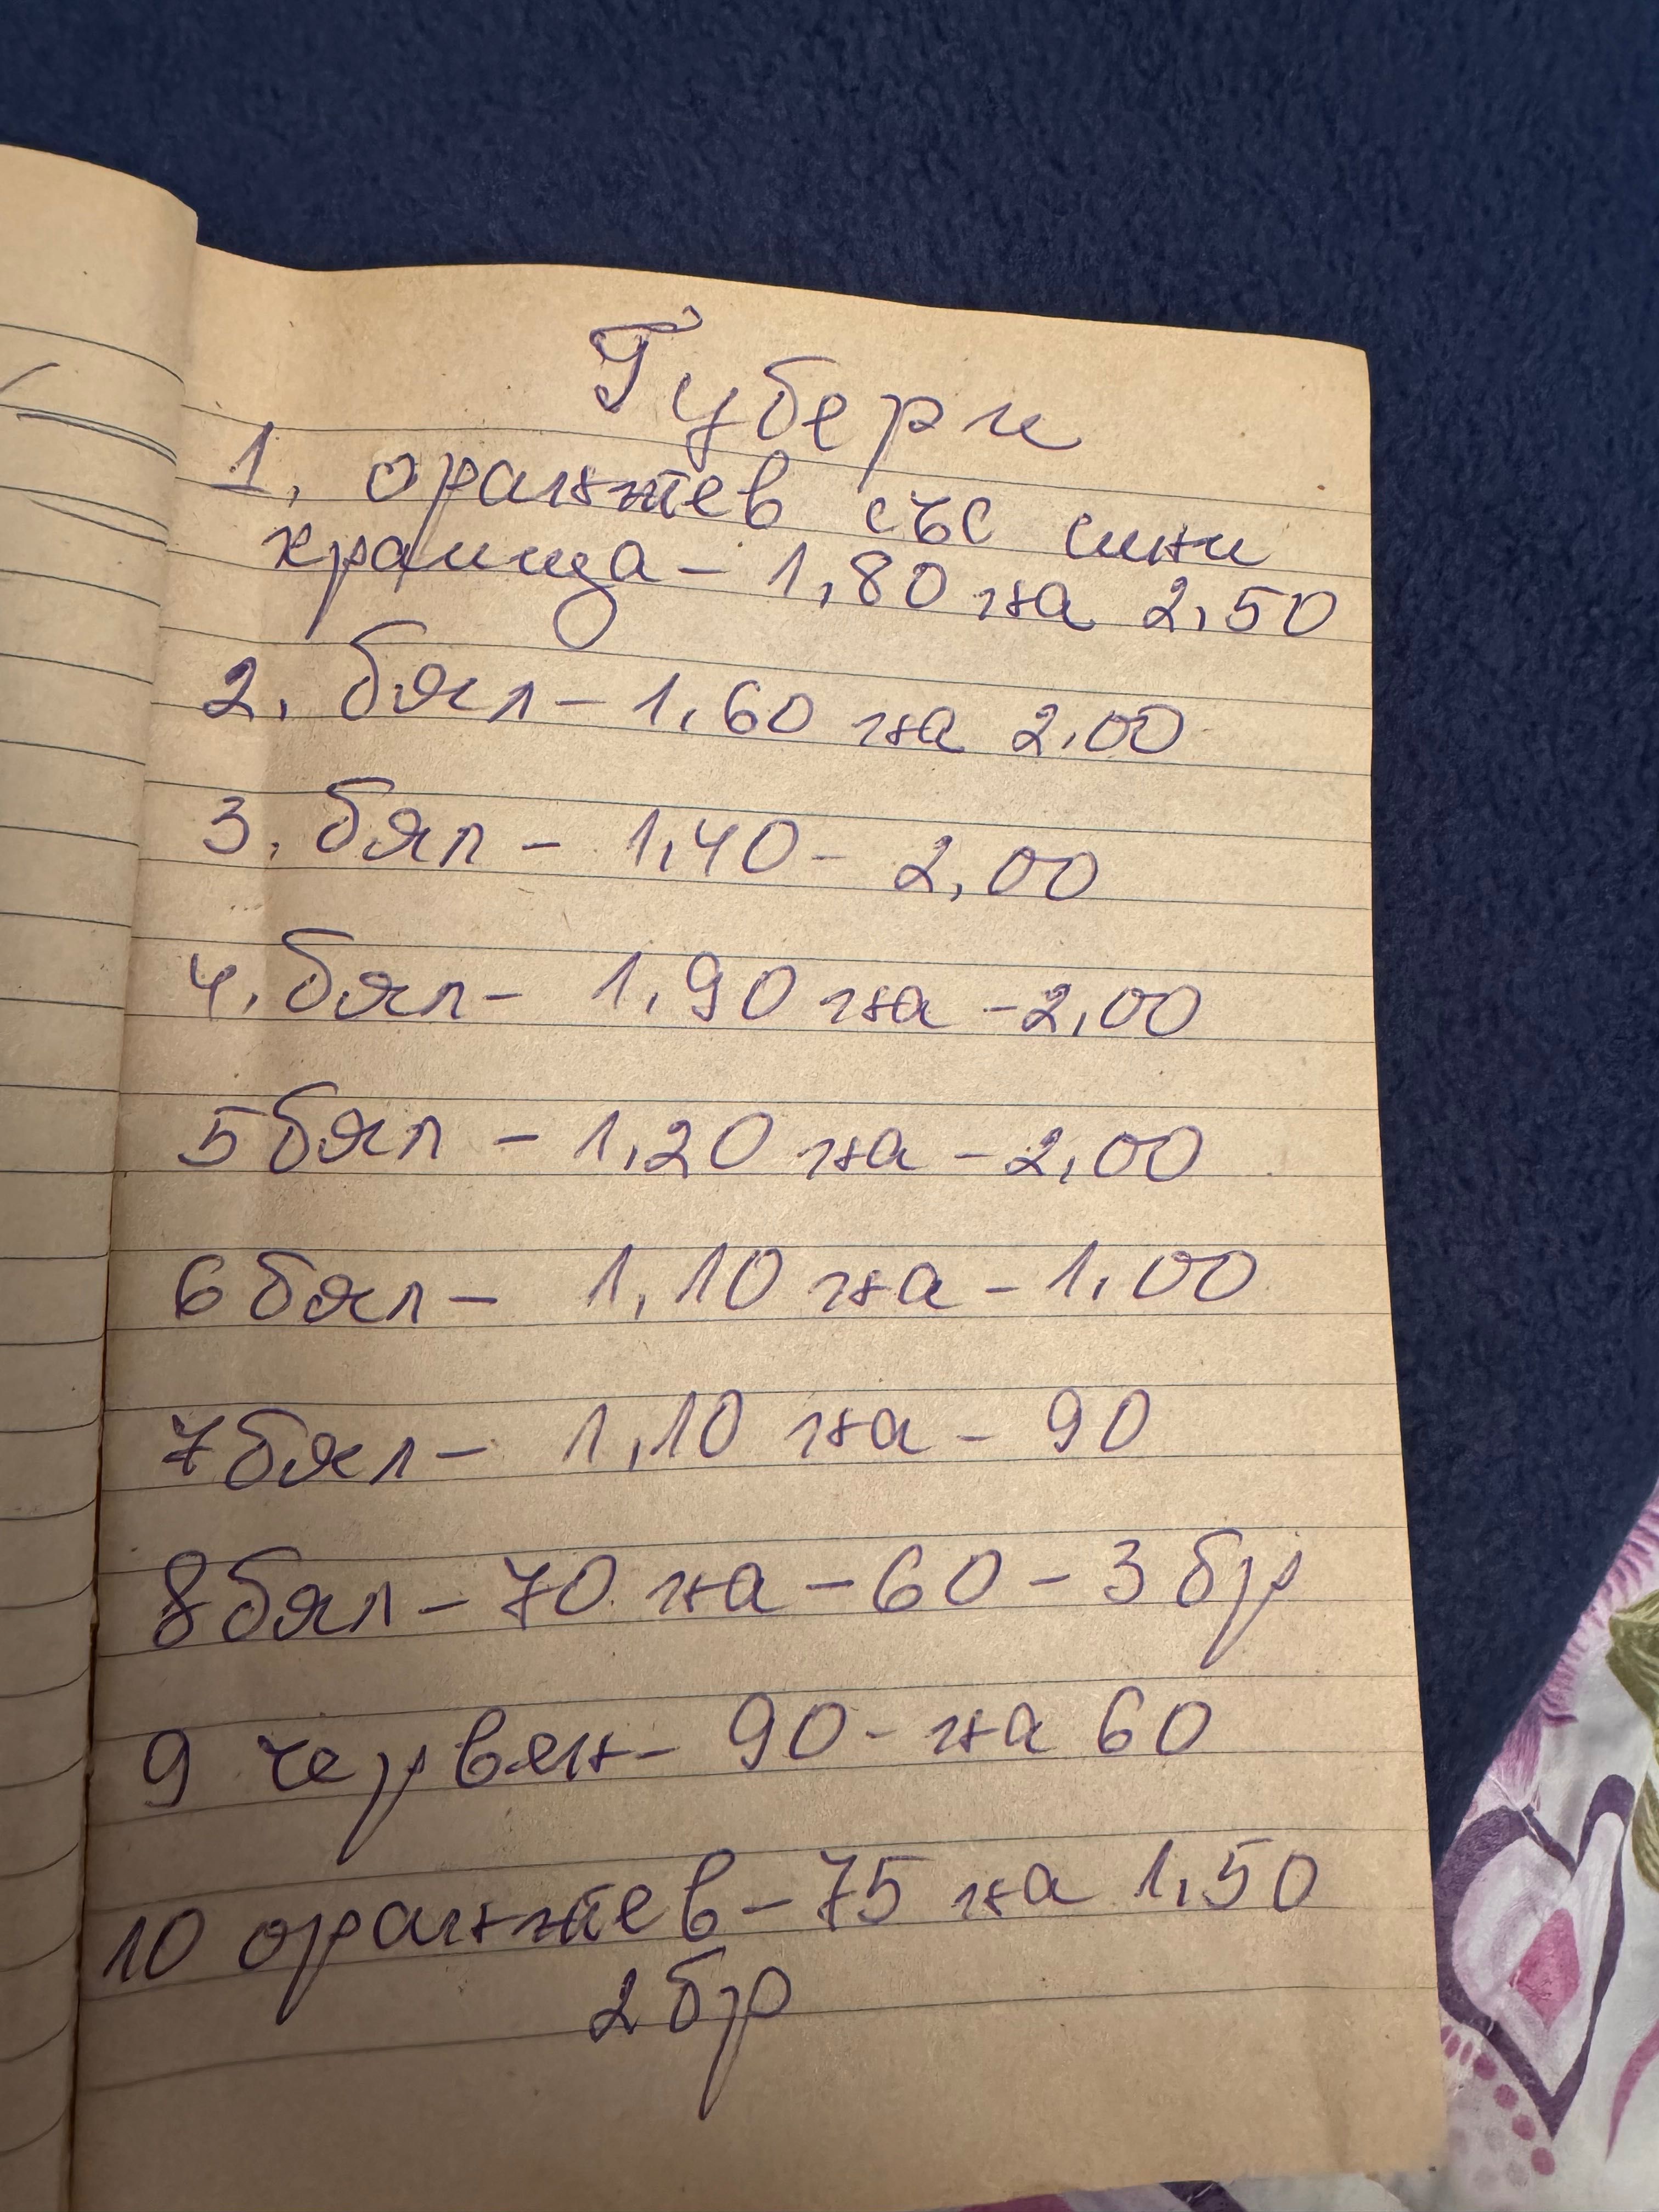 Губери
1. оранжев със сини
краища - 1,80 на 2,50
2. бял - 1,60 на 2,00
3. бял - 1,40 - 2,00
4. бял - 1,90 на - 2,00
5 бял - 1,20 на - 2,00
6 бял - 1,10 на - 1,00
7 бял - 1,10 на - 90
8 бял - 70 на - 60 - 3 бр
9 червен - 90 - на 60
10 оранжев - 75 на 1,50
2 бр